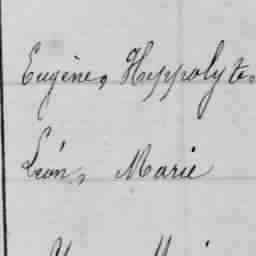 Eugène, Hyppolyte,
Léon, Marie